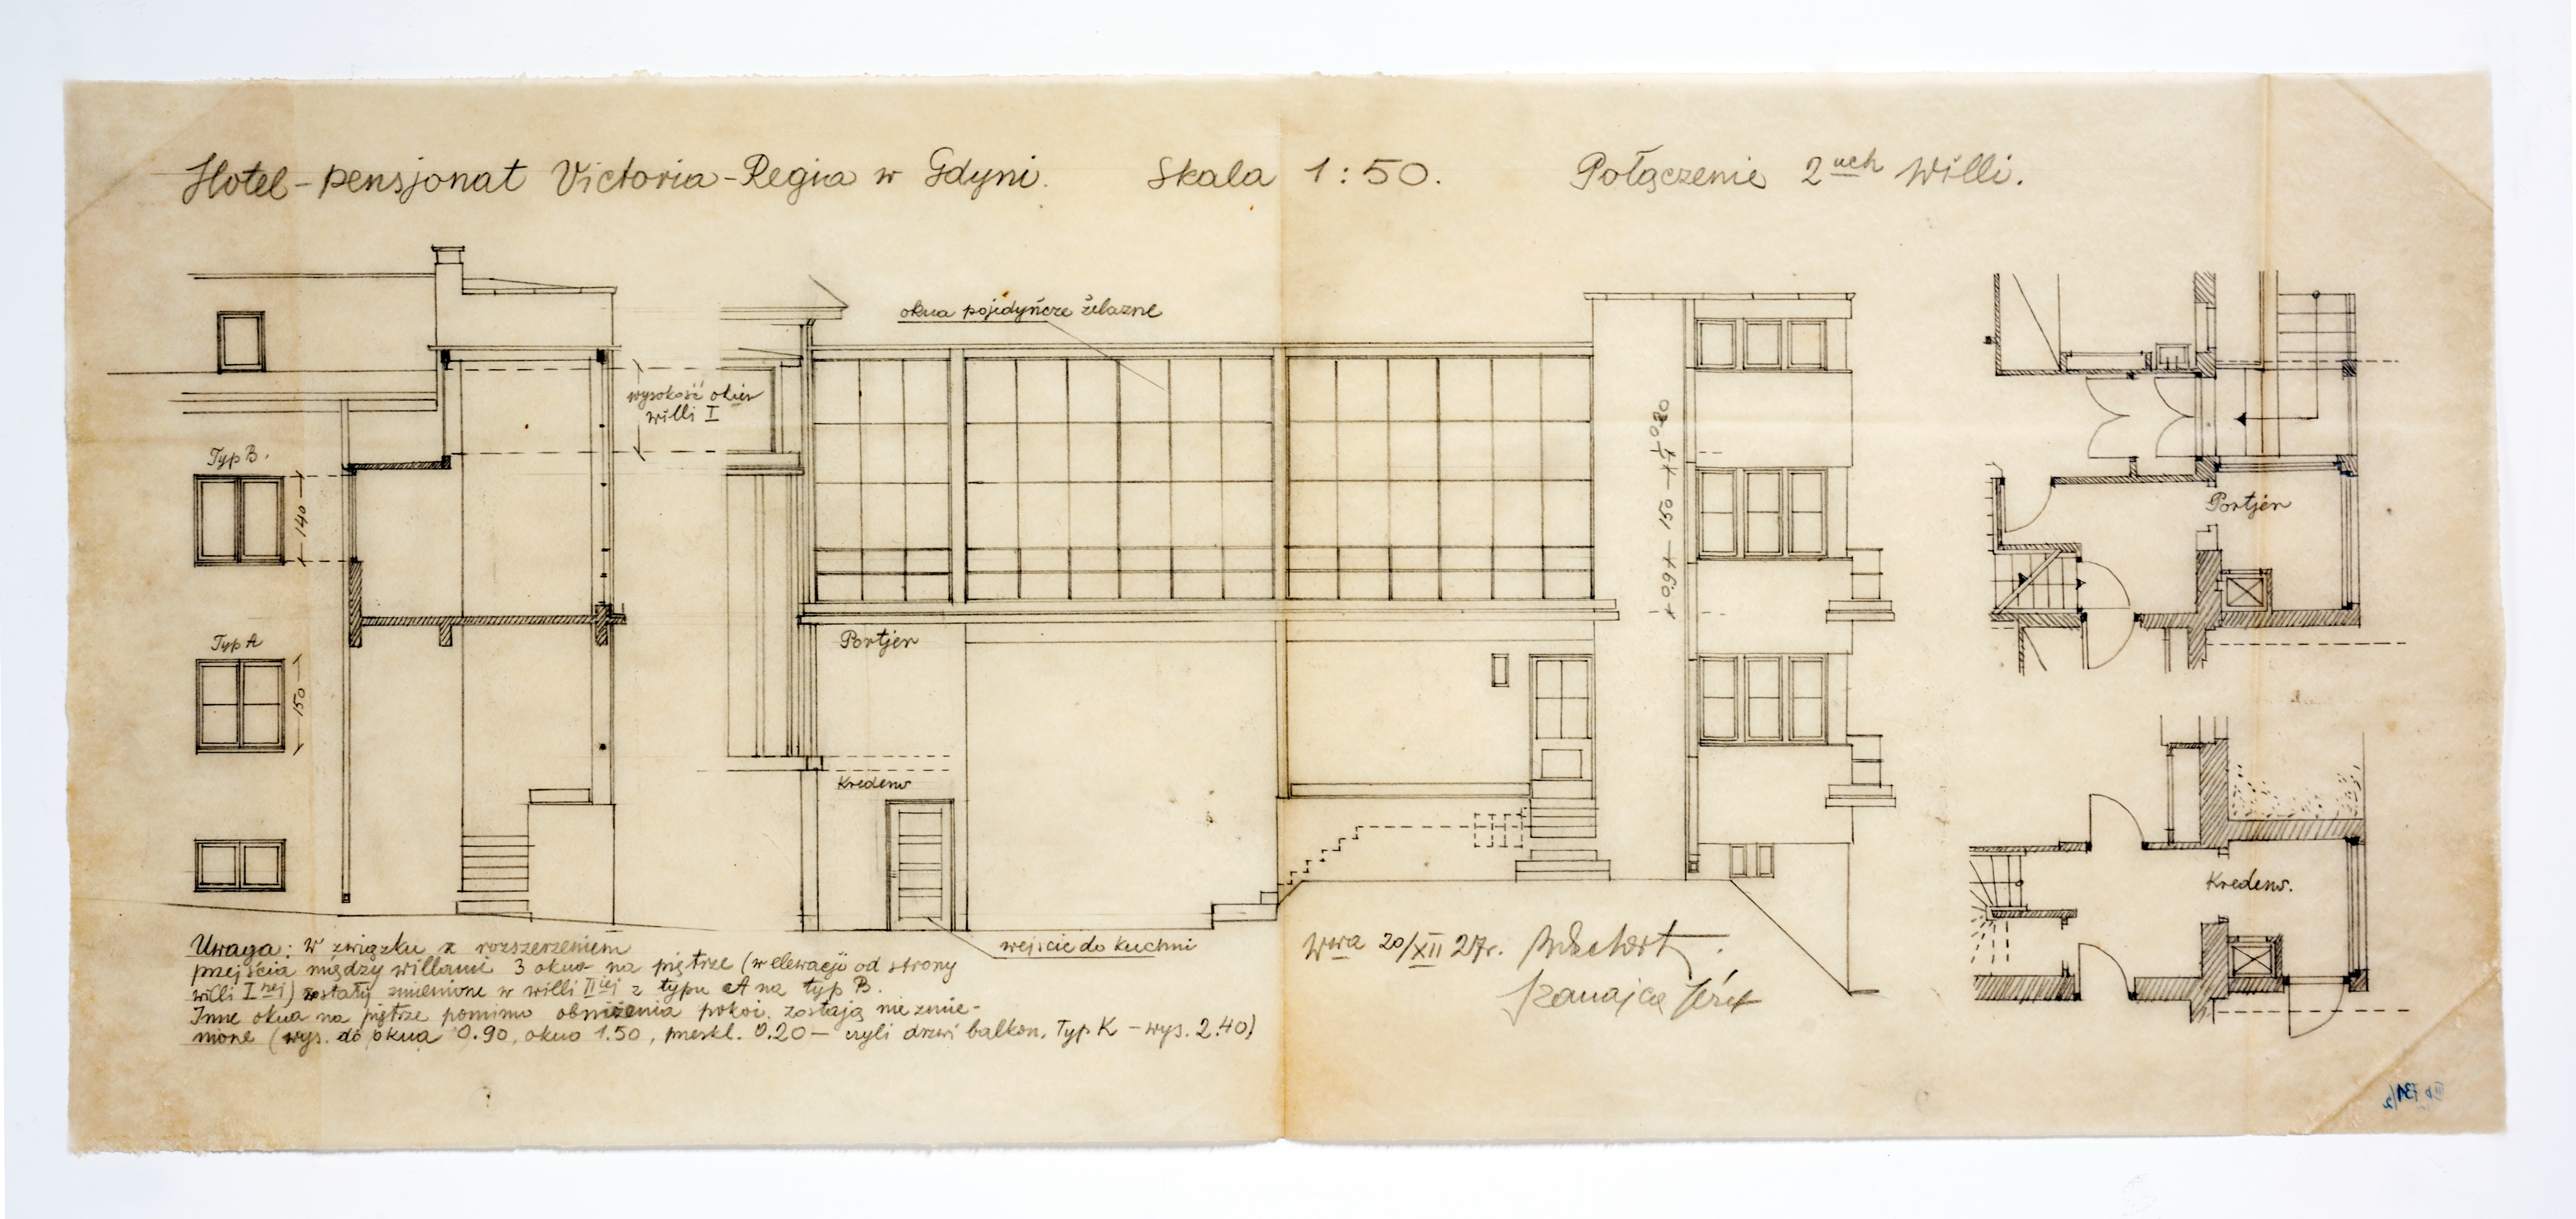 Hotel-pensjonat Victoria-Regia w Gdyni. Skala 1:50. Połączenie 2uch Willi.
okna pojedyńcze żelazne
wysokość okien
willi I
Typ B.
140
Typ A
150
Portjer
Kredens
wejście do kuchni
0.90 150 0.20
Portjer
Kredens.
Uwaga: w związku z rozszerzeniem
przejścia między willami 3 okna na piętrze (w elewacji od strony
willi I nej) zostały zmienione w willi II iej z typu A na typ B.
Inne okna na piętrze pomimo obniżenia pokoi, zostają niezmie-
nione (wys. do okna 0.90, okno 1.50, przeskl. 0.20 — czyli drzwi balkon. Typ K – wys. 2.40)
Wwa 20/XII 27r.
Szanajca Józef